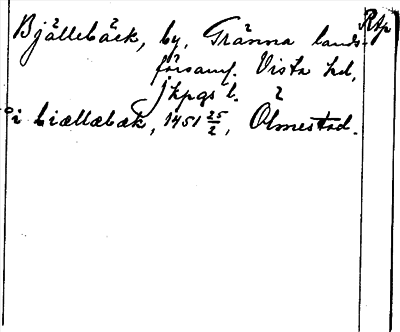 Bjällebäck, by, Gränna lands- Rap
församl. Vista hd,
Jkpgs l. 2
i biællæbæk, 1451 25/2, Ölmestad.